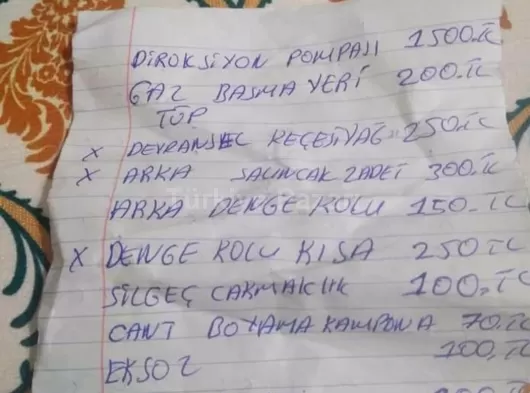 DİROKSİYON POMPASI 1500.TL
GAZ BASMA YERİ 200.TL
TÜP
X DEVRANSEL KEÇESİYAĞ 250.TL
X ARKA SALINCAK 2ADET 300.TL
ARKA DENGE KOLU 150-TL
X DENGE KOLU KISA 250TL
SİLGEÇ CAKMAKLIK 100.TL
CANT BOYAMA KAMPONA 70.TL
EKSOZ 100.TL